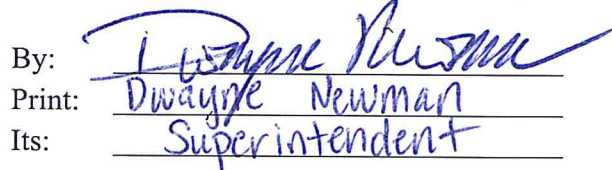 By: Dwayne Newman
Print: Dwayne Newman
Its: Superintendent